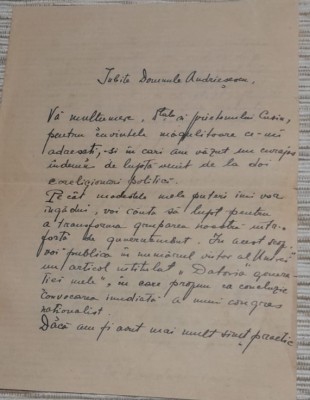 Iubite Domnule Andriescu,
Vă mulțumesc, și prietenului Cusin,
pentru cuvintele măgulitoare ce-mi
adresați, și în cari am văzut un curajos
îndemn de luptă venit de la doi
coreligionari politici.
Pe cât modestele mele puteri îmi vor
îngădui, voi căuta să lupt pentru
a transforma gruparea noastră într-o
forță de guvernământ. În acest scop
voi publica în numărul viitor al
un articol intitulat "Datoria genera
ției mele", în care propun ca concluzie
convocarea imediată a unui congres
naționalist.
Dacă am fi avut mai mult simț practic